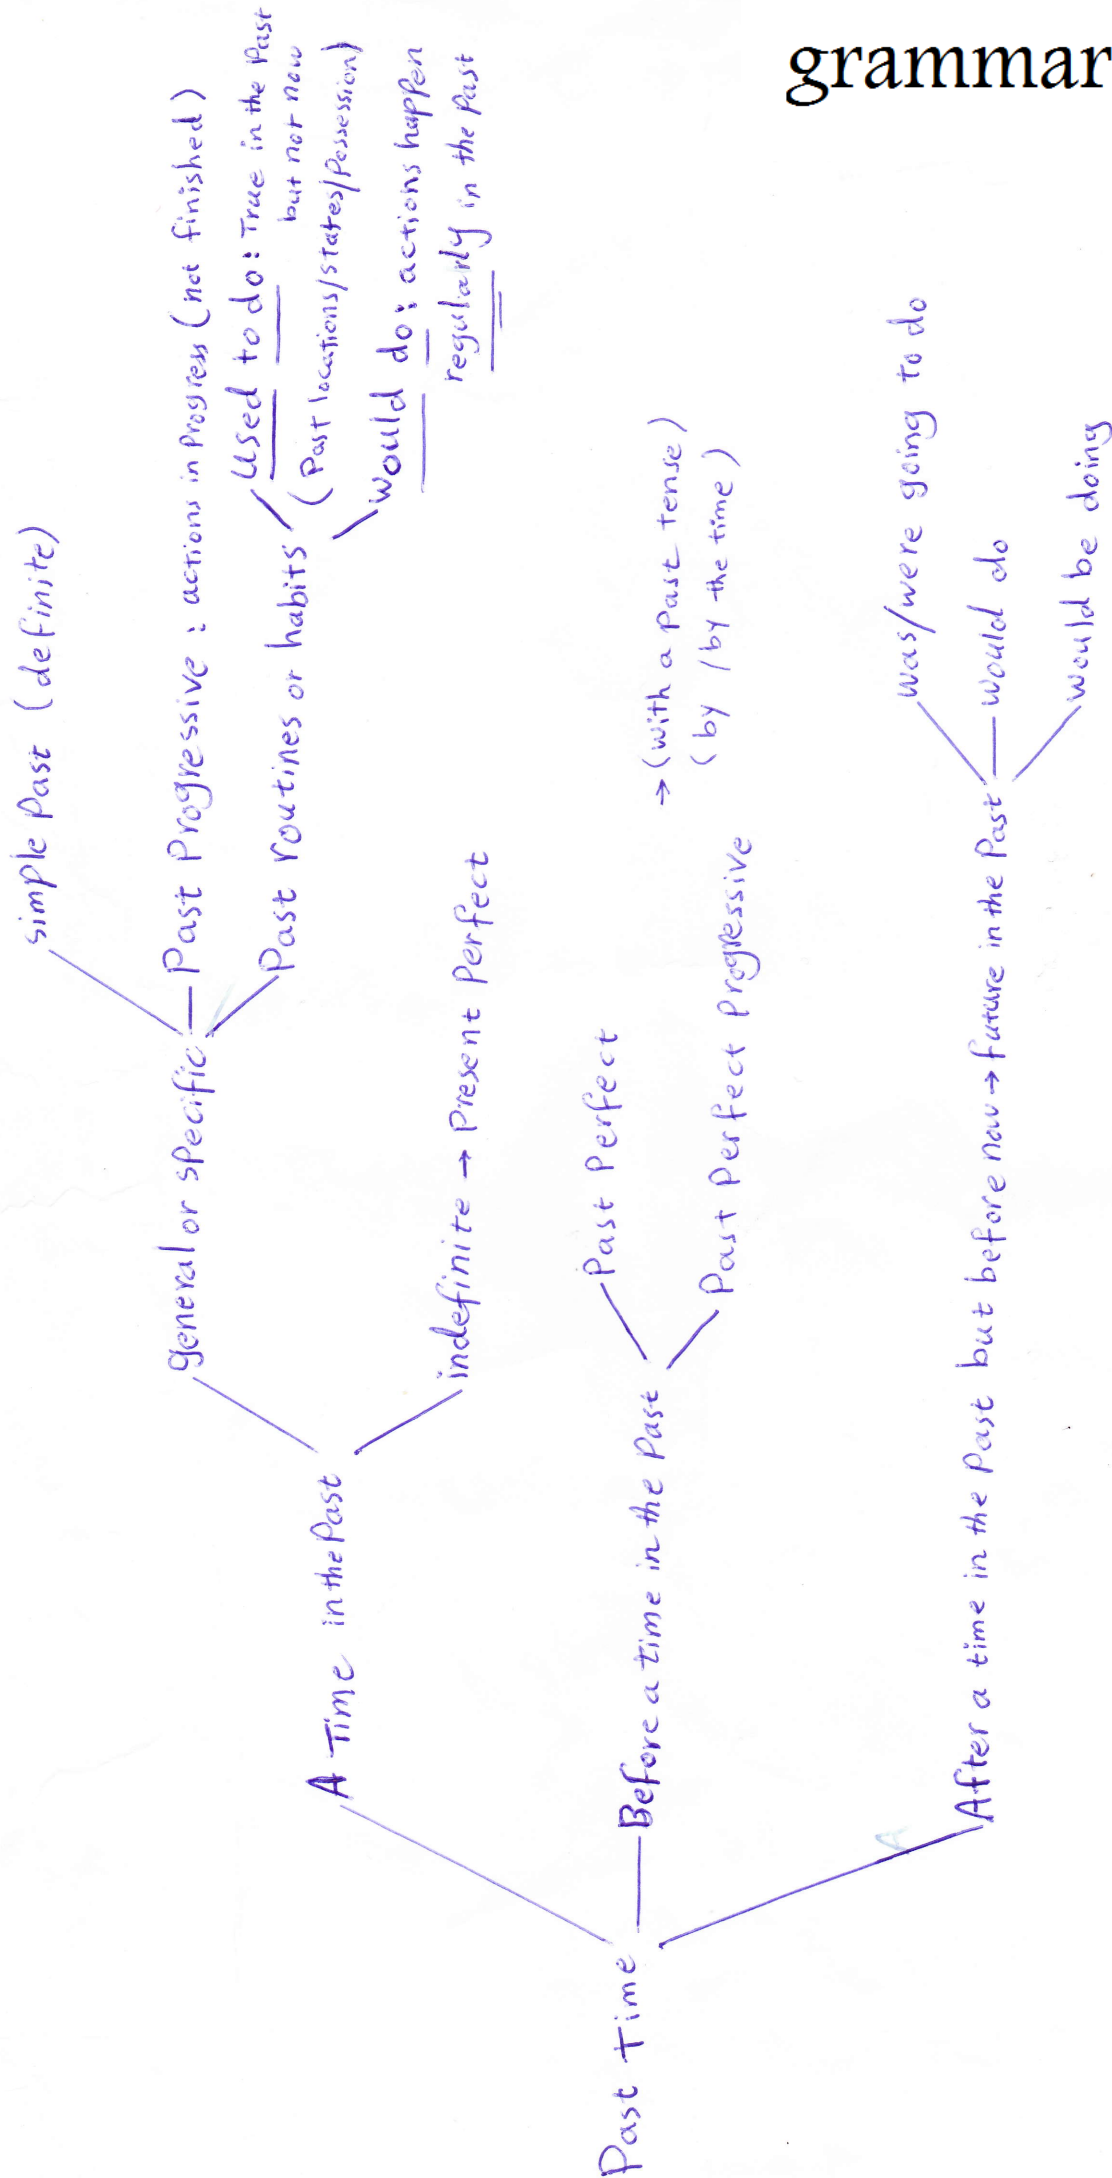 grammar
Past Time
A Time in the Past
general or specific
simple Past (definite)
Past Progressive : actions in Progress (not finished)
Past routines or habits
used to do : True in the Past
but not now
(Past locations/states/Possession)
would do : actions happen
regularly in the Past
indefinite → Present Perfect
Before a time in the Past
Past Perfect
Past Perfect Progressive
→ (with a Past tense)
(by / by the time)
After a time in the Past but before now → future in the Past
was/were going to do
would do
would be doing